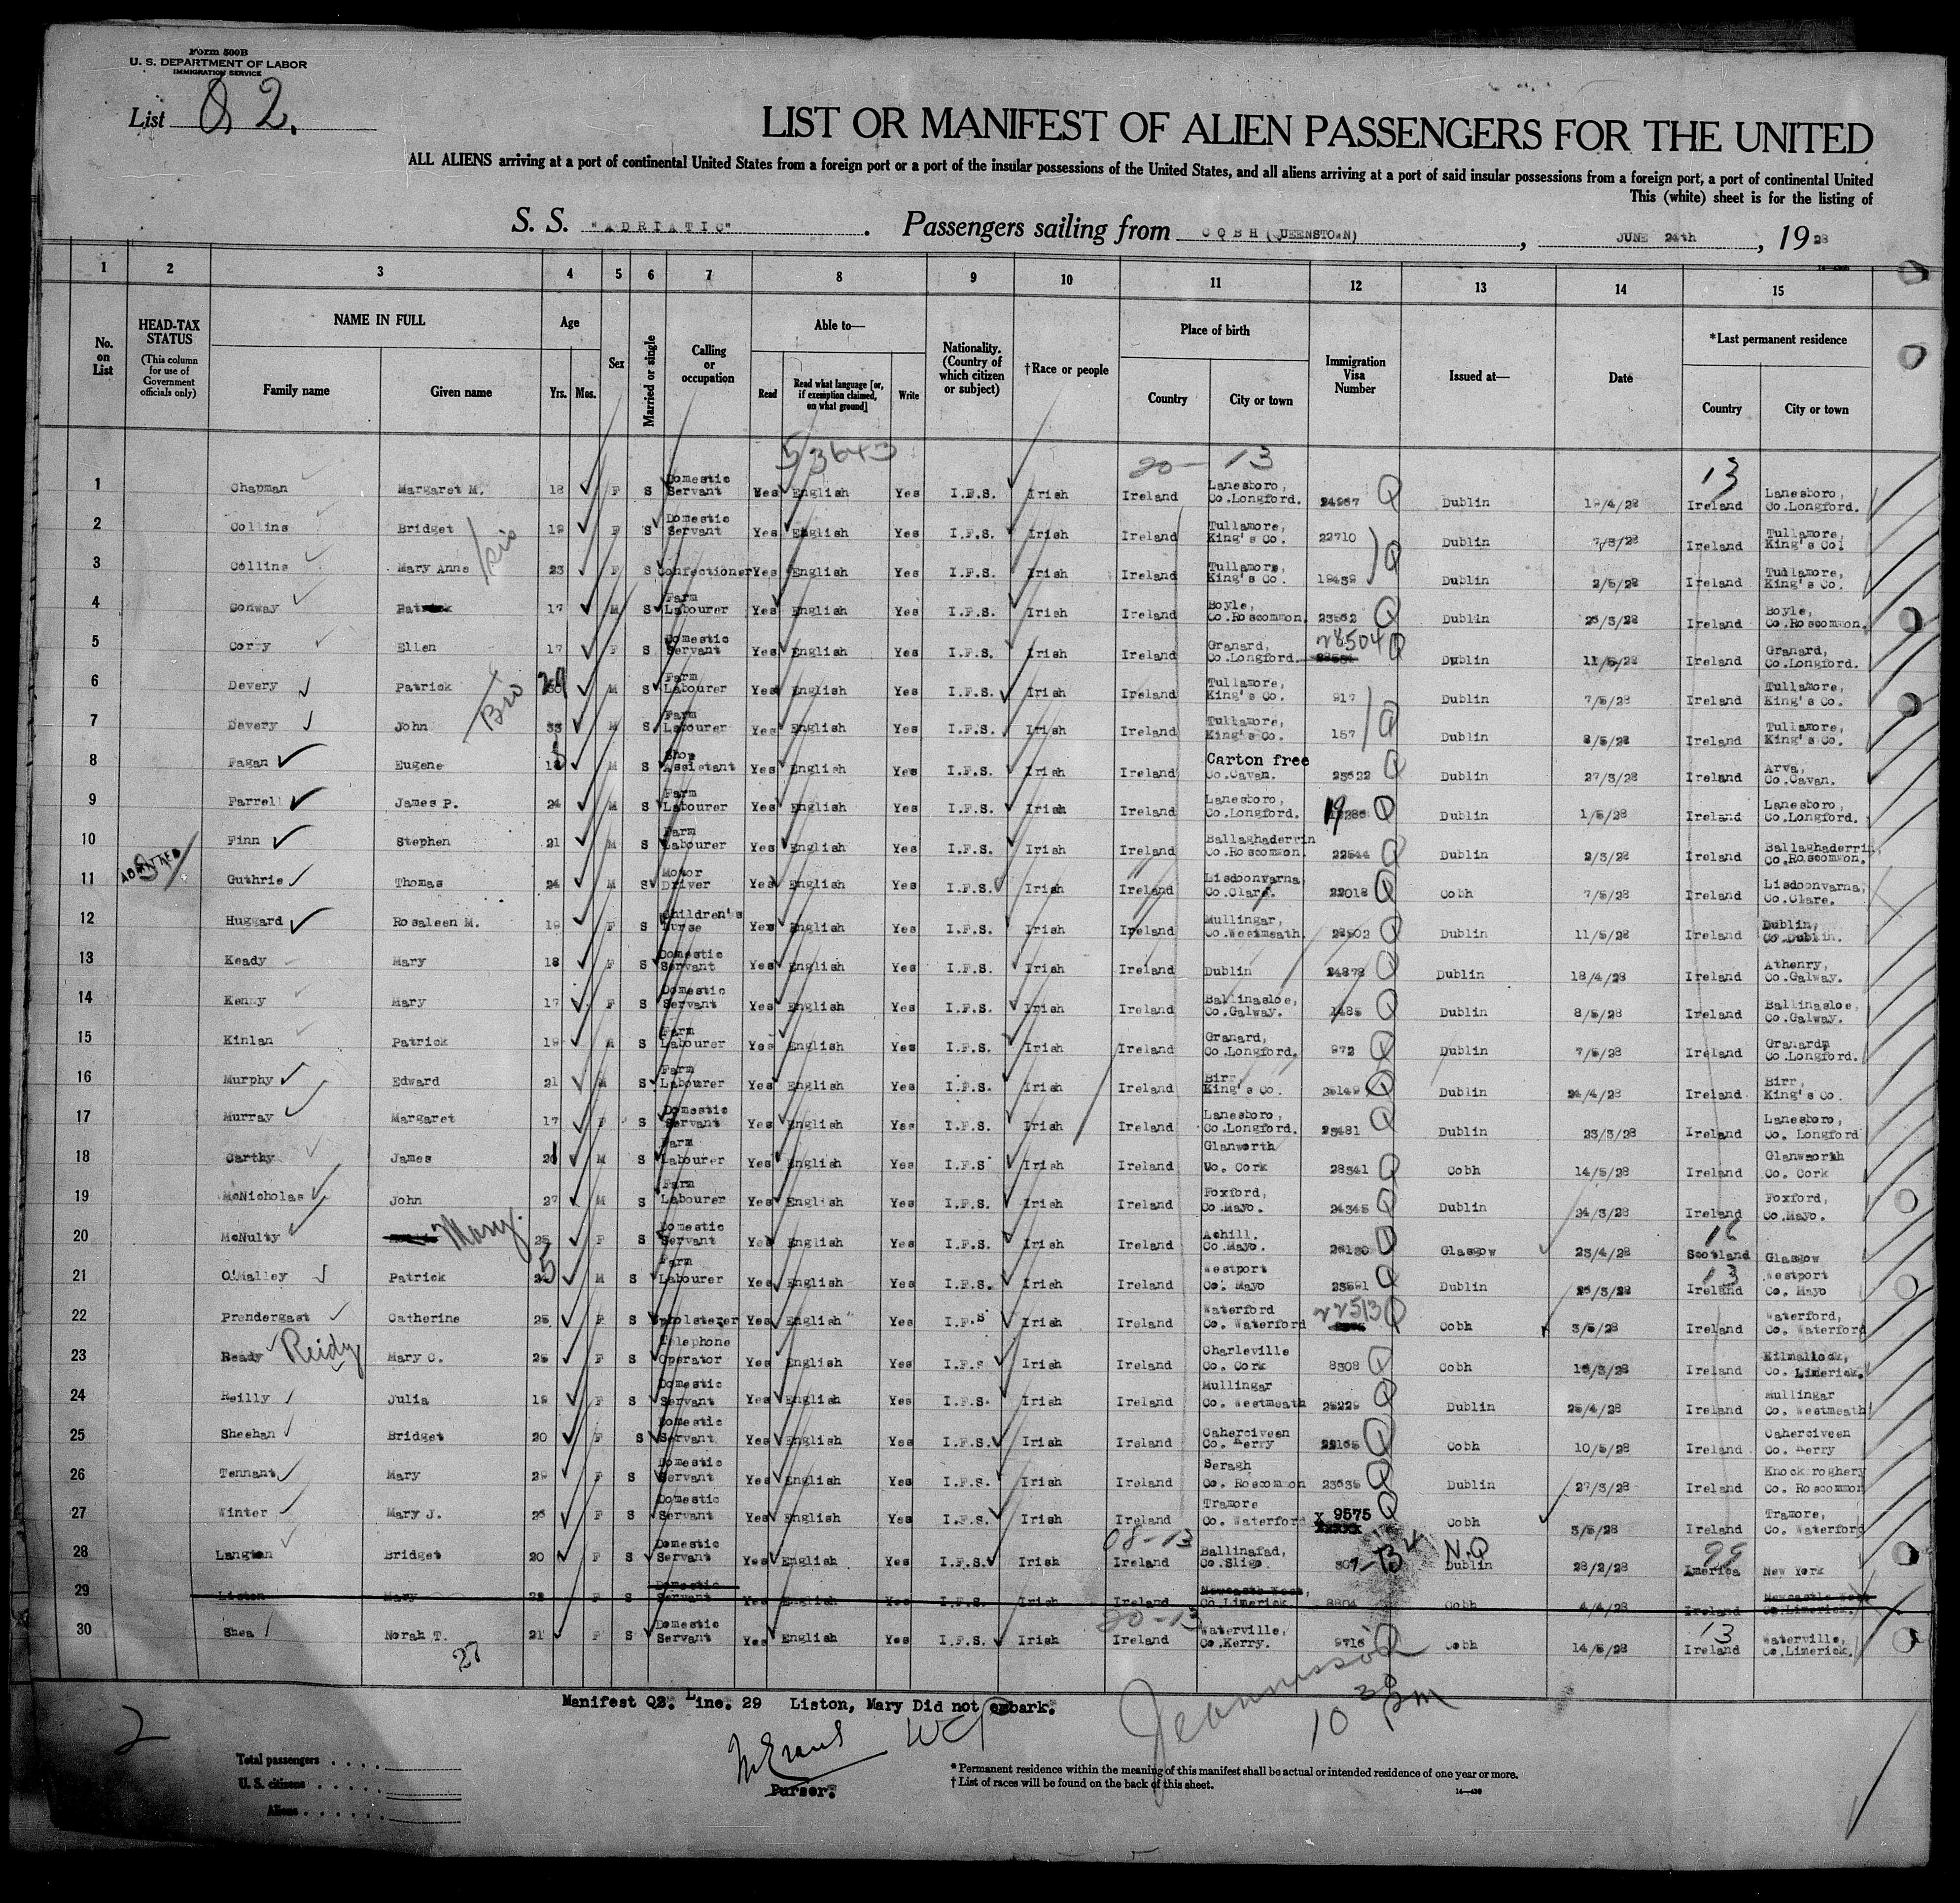 Form 500B
U. S. DEPARTMENT OF LABOR
IMMIGRATION SERVICE
List Q 2.
LIST OR MANIFEST OF ALIEN PASSENGERS FOR THE UNITED
ALL ALIENS arriving at a port of continental United States from a foreign port or a port of the insular possessions of the United States, and all aliens arriving at a port of said insular possessions from a foreign port, a port of continental United
This (white) sheet is for the listing of
S. S. "ADRIATIC". Passengers sailing from COBH (QUEENSTOWN), JUNE 24th, 1928
1 2 3 4 5 6 7 8 9 10 11 12 13 14 15
No. on List
HEAD-TAX STATUS (This column for use of Government officials only)
NAME IN FULL Family name Given name
Age Yrs. Mos.
Sex
Married or single
Calling or occupation
Able to— Read Read what language [or, if exemption claimed, on what ground] Write
Nationality. (Country of which citizen or subject)
†Race or people
Place of birth Country City or town
Immigration Visa Number
Issued at—
Date
*Last permanent residence Country City or town
53643 20-13 13
1 Chapman Margaret M. 18 F S Domestic Servant Yes English Yes I.F.S. Irish Ireland Lanesboro, Co.Longford. 24967 Q Dublin 19/4/28 Ireland Lanesboro, Co.Longford.
2 Collins Bridget 19 F S Domestic Servant Yes English Yes I.F.S. Irish Ireland Tullamore, King's Co. 22710 Dublin 7/3/28 Ireland Tullamore, King's Co.
3 Collins Mary Anne 23 F S Confectioner Yes English Yes I.F.S. Irish Ireland Tullamore, King's Co. 19439 Q Dublin 2/5/28 Ireland Tullamore, King's Co.
4 Conway Patrick 17 M S Farm Labourer Yes English Yes I.F.S. Irish Ireland Boyle, Co.Roscommon. 23562 Q Dublin 26/3/28 Ireland Boyle, Co.Roscommon.
5 Corry Ellen 17 F S Domestic Servant Yes English Yes I.F.S. Irish Ireland Granard, Co.Longford. 28504 Q Dublin 11/5/28 Ireland Granard, Co.Longford.
6 Devery Patrick 29 M S Farm Labourer Yes English Yes I.F.S. Irish Ireland Tullamore, King's Co. 917 Dublin 7/5/28 Ireland Tullamore, King's Co.
7 Devery John 33 M S Farm Labourer Yes English Yes I.F.S. Irish Ireland Tullamore, King's Co. 157 Q Dublin 8/5/28 Ireland Tullamore, King's Co.
8 Fagan Eugene M S Shop Assistant Yes English Yes I.F.S. Irish Ireland Carton free Co.Cavan. 23622 Q Dublin 27/3/28 Ireland Arva, Co.Cavan.
9 Farrell James P. 24 M S Farm Labourer Yes English Yes I.F.S. Irish Ireland Lanesboro, Co.Longford. 19286 Q Dublin 1/5/28 Ireland Lanesboro, Co.Longford.
10 Finn Stephen 21 M S Farm Labourer Yes English Yes I.F.S. Irish Ireland Ballaghaderrin Co.Roscommon. 22544 Q Dublin 2/3/28 Ireland Ballaghaderrin, Co.Roscommon.
ADMITTED
11 Guthrie Thomas 24 M S Motor Driver Yes English Yes I.F.S. Irish Ireland Lisdoonvarna Co.Clare. 22018 Q Cobh 7/5/28 Ireland Lisdoonvarna, Co.Clare.
12 Huggard Rosaleen M. 19 F S Children's Nurse Yes English Yes I.F.S. Irish Ireland Mullingar, Co.Westmeath. 28502 Q Dublin 11/5/28 Ireland Dublin, Co.Dublin.
13 Keady Mary 18 F S Domestic Servant Yes English Yes I.F.S. Irish Ireland Dublin 24878 Q Dublin 18/4/28 Ireland Athenry, Co.Galway.
14 Kenny Mary 17 F S Domestic Servant Yes English Yes I.F.S. Irish Ireland Ballinasloe, Co.Galway. 1485 Q Dublin 8/5/28 Ireland Ballinasloe, Co.Galway.
15 Kinlan Patrick 19 M S Farm Labourer Yes English Yes I.F.S. Irish Ireland Granard, Co.Longford. 972 Q Dublin 7/5/28 Ireland Granard, Co.Longford.
16 Murphy Edward 21 M S Farm Labourer Yes English Yes I.F.S. Irish Ireland Birr, King's Co. 25149 Q Dublin 24/4/28 Ireland Birr, King's Co.
17 Murray Margaret 17 F S Domestic Servant Yes English Yes I.F.S. Irish Ireland Lanesboro, Co.Longford. 23481 Q Dublin 23/3/28 Ireland Lanesboro, Co. Longford
18 Carthy James 21 M S Farm Labourer Yes English Yes I.F.S Irish Ireland Glanworth Co. Cork 28341 Q Cobh 14/5/28 Ireland Glanworth Co. Cork
19 McNicholas John 27 M S Farm Labourer Yes English Yes I.F.S. Irish Ireland Foxford, Co.Mayo. 24345 Q Dublin 24/3/28 Ireland Foxford, Co.Mayo.
20 McNulty Mary. 25 F S Domestic Servant Yes English Yes I.F.S. Irish Ireland Achill. Co.Mayo. 26130 Q Glasgow 23/4/28 Scotland Glasgow
21 O'Malley Patrick 25 M S Farm Labourer Yes English Yes I.F.S. Irish Ireland Westport Co. Mayo 23591 Q Dublin 26/3/28 13 Ireland Westport Co. Mayo
22 Prendergast Catherine 25 F S Upholsterer Yes English Yes I.F.S Irish Ireland Waterford Co. Waterford 22513 Q Cobh 3/5/28 Ireland Waterford, Co. Waterford
23 Ready Reidy Mary C. 25 F S Telephone Operator Yes English Yes I.F.S Irish Ireland Charleville Co. Cork 8308 Q Cobh 16/3/28 Ireland Kilmallock, Co. Limerick.
24 Reilly Julia 19 F S Domestic Servant Yes English Yes I.F.S. Irish Ireland Mullingar Co. Westmeath 25229 Q Dublin 25/4/28 Ireland Mullingar Co. Westmeath
25 Sheehan Bridget 20 F S Domestic Servant Yes English Yes I.F.S. Irish Ireland Caherciveen Co. Kerry 22165 Q Cobh 10/5/28 Ireland Caherciveen Co. Kerry
26 Tennant Mary 29 F S Domestic Servant Yes English Yes I.F.S. Irish Ireland Seragh Co. Roscommon 23635 Q Dublin 27/3/28 Ireland Knockroghery Co. Roscommon
27 Winter Mary J. F S Domestic Servant Yes English Yes I.F.S. Irish Ireland Tramore Co. Waterford X 9575 Q Cobh 3/5/28 Ireland Tramore, Co. Waterford
08-13 N.Q 99
28 Langton Bridget 20 F S Domestic Servant Yes English Yes I.F.S. Irish Ireland Ballinafad, Co.Sligo. 307 Dublin 28/2/28 America New York
29 Liston Mary 22 F S Domestic Servant Yes English Yes I.F.S. Irish Ireland Newcastle West, Co.Limerick. 8804 Cobh 4/4/28 Ireland Newcastle West Co.Limerick.
20-13 13
30 Shea Norah T. 21 F S Domestic Servant Yes English Yes I.F.S. Irish Ireland Waterville, Co.Kerry. 9716 Q Cobh 14/5/28 Ireland Waterville, Co.Limerick.
27
Manifest Q2. Line. 29 Liston, Mary Did not embark.
2
Purser.
10 30 pm
Total passengers
U. S. citizens
Aliens
* Permanent residence within the meaning of this manifest shall be actual or intended residence of one year or more.
† List of races will be found on the back of this sheet.